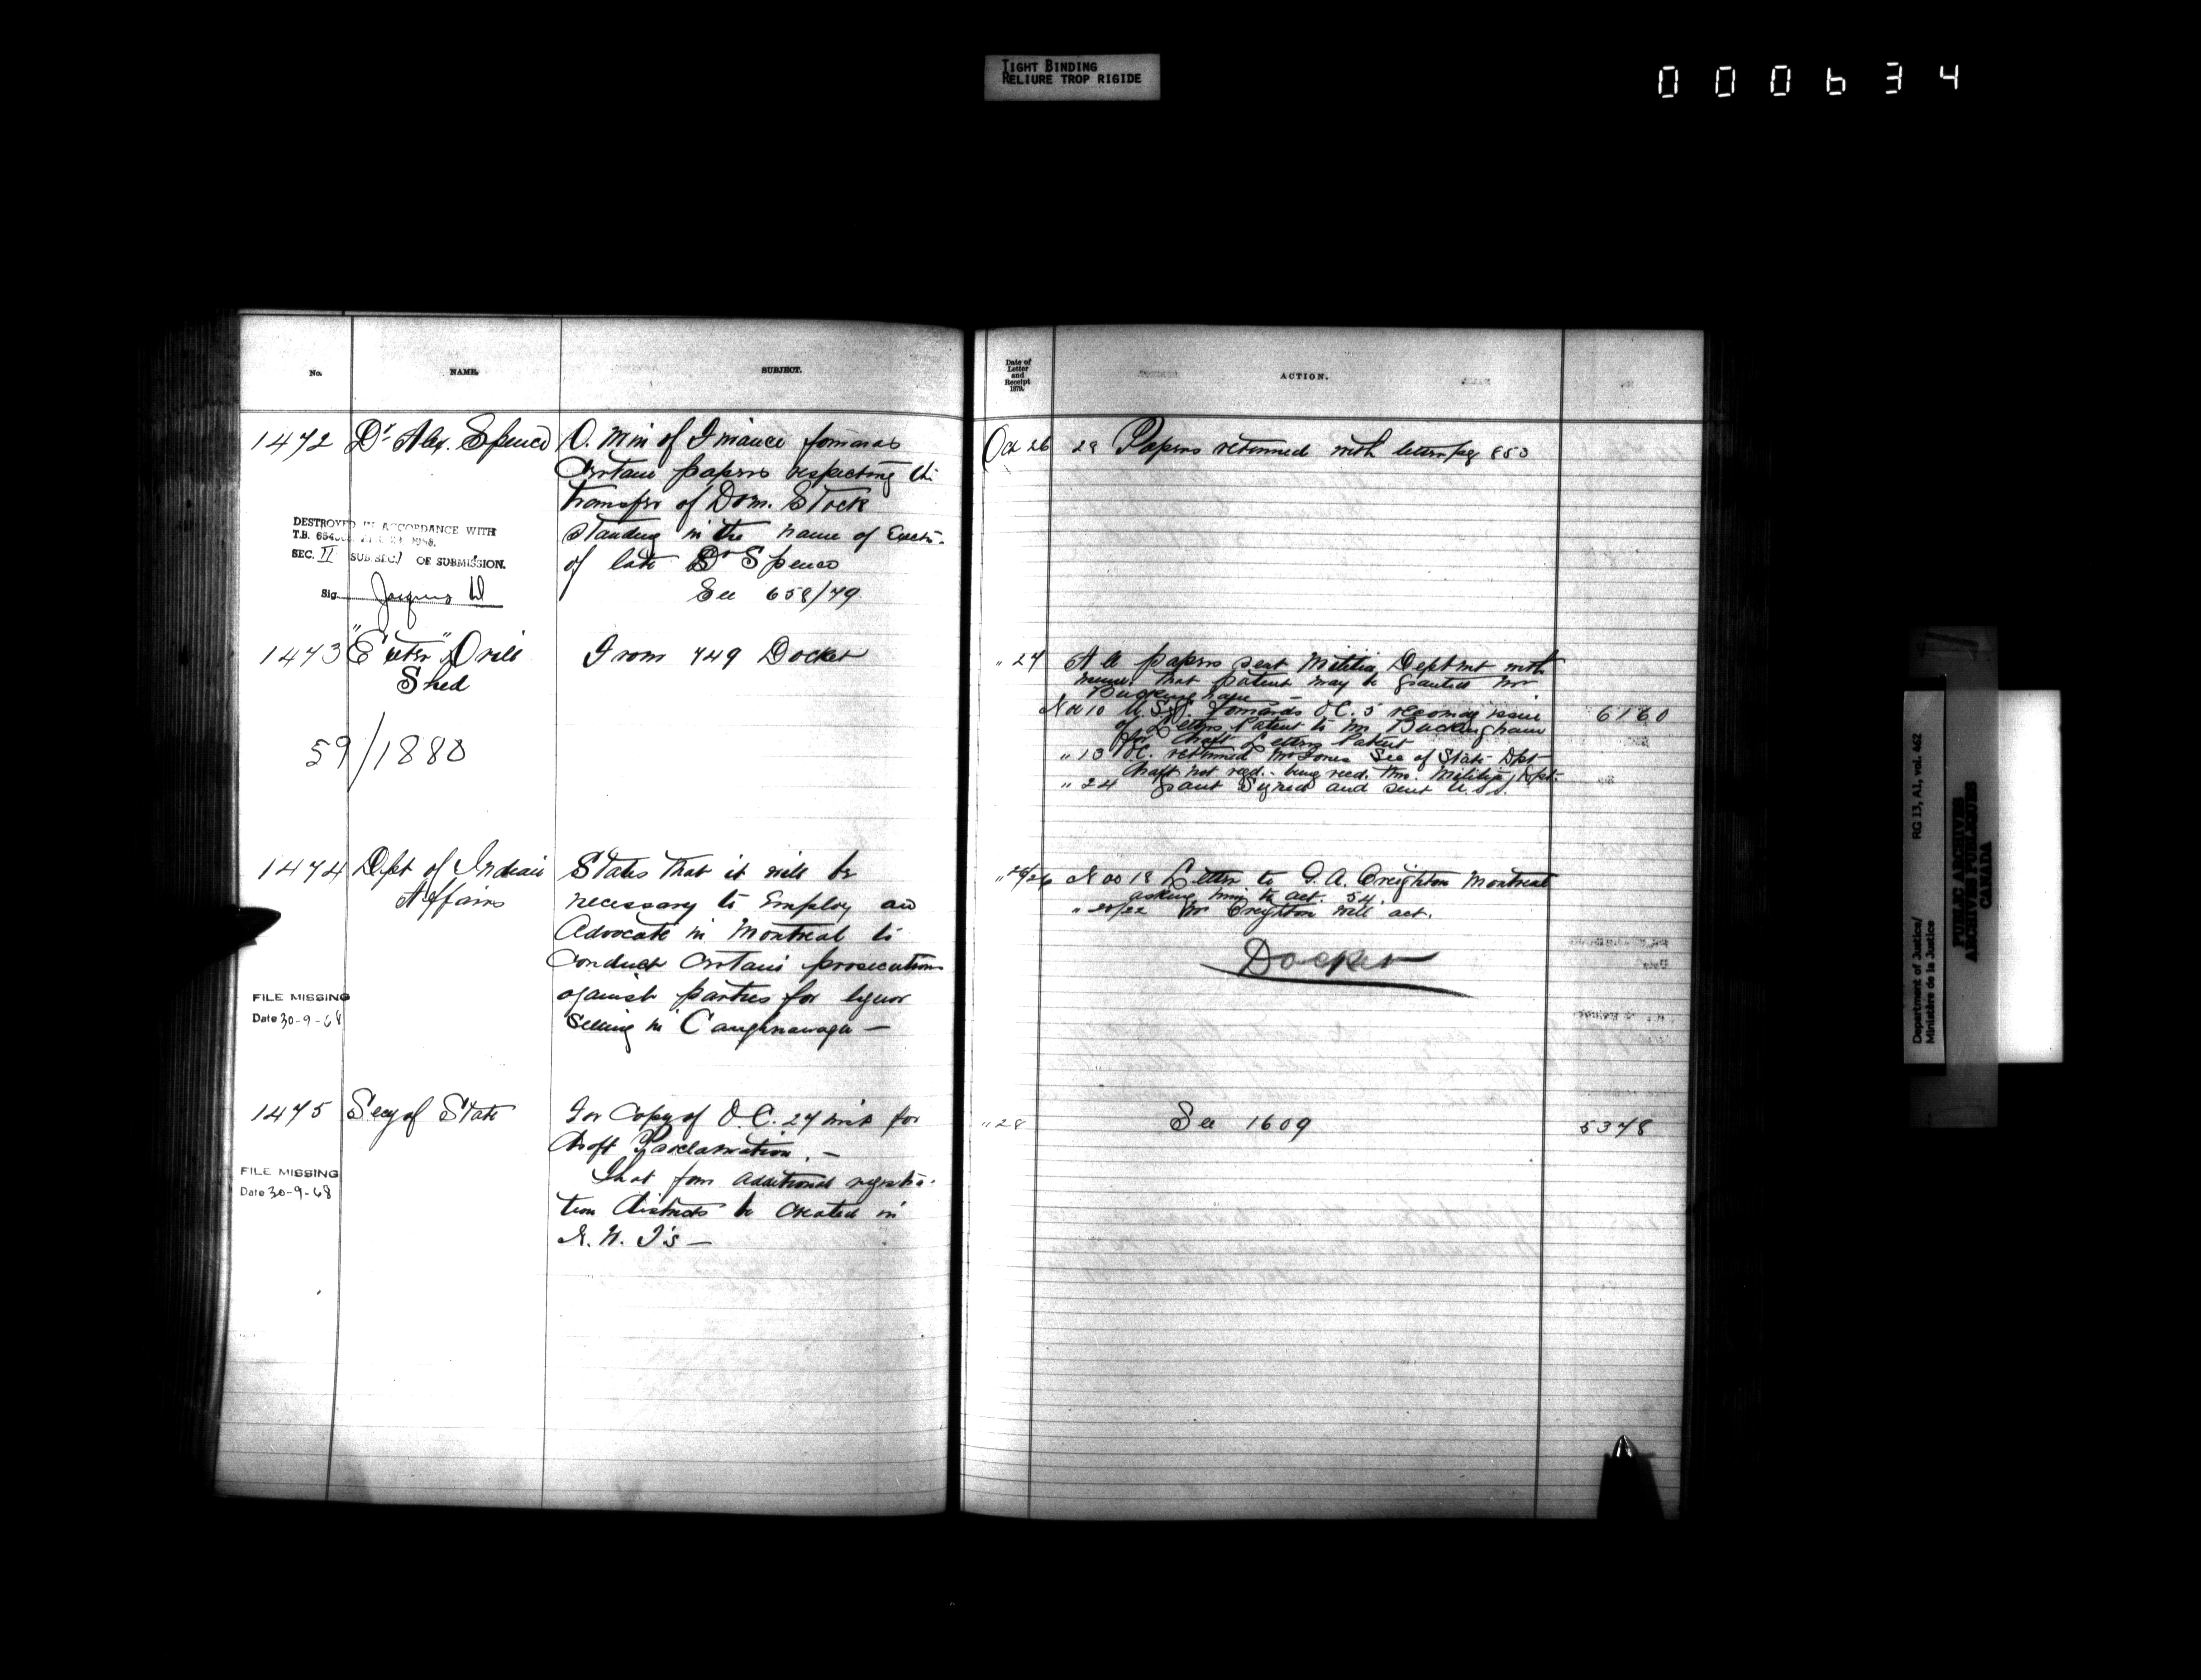 TIGHT BINDING
RELIURE TROP RIGIDE
000634
No.
NAME.
SUBJECT.
1472 Dr Alex. Spence
D. Min of Finance forwards
Certain papers respecting the
transfer of Dom. Stock
standing in the name of Exects.
of late Dr Spence
See 658/79.
DESTROYED IN ACCORDANCE WITH
T.B.
SEC. II SUB.SEC. 1 OF SUBMISSION.
Sig.
1473 "Exeter" Drill
Shed
From 749 Docket
59/1880
1474 Dept of Indian
Affairs
States that it will be
necessary to employ an
Advocate in Montreal to
Conduct Certain prosecutions
against parties for liquor
selling in Caughnawaga —
FILE MISSING
Date 30-9-68
1475 Secy of State
For Copy of O.C. 27 inst for
draft Proclamation. —
That four additional registra-
tion districts be created in
N. W. T's —
FILE MISSING
Date 30-9-68
Date of
Letter
and
Receipt
1879.
ACTION.
Oct 26 28 Papers returned with letter pg 850
" 27 All papers sent Militia Deptmt with
memo. that patent may be granted Mr
Buckingham —
Nov 10 U.S.S. forwards O.C. 5 recomdg issue 6160
of Letters Patent to Mr Buckingham
for draft Letters Patent
" 13 O.C. returned Mr Jones Sec of State Dpt —
draft not reqd. - being recd. thro. Militia Dept.
" 24 Grant Signed and sent U.S.S.
" 25/26 Nov 18 Letter to J. A. Creighton Montreal
asking him to act. 54.
" 20/22 Mr Creighton will act.
Docket
" 28 See 1609 5378
Department of Justice/
Ministère de la Justice
RG 13, A1, vol. 462
PUBLIC ARCHIVES
ARCHIVES PUBLIQUES
CANADA